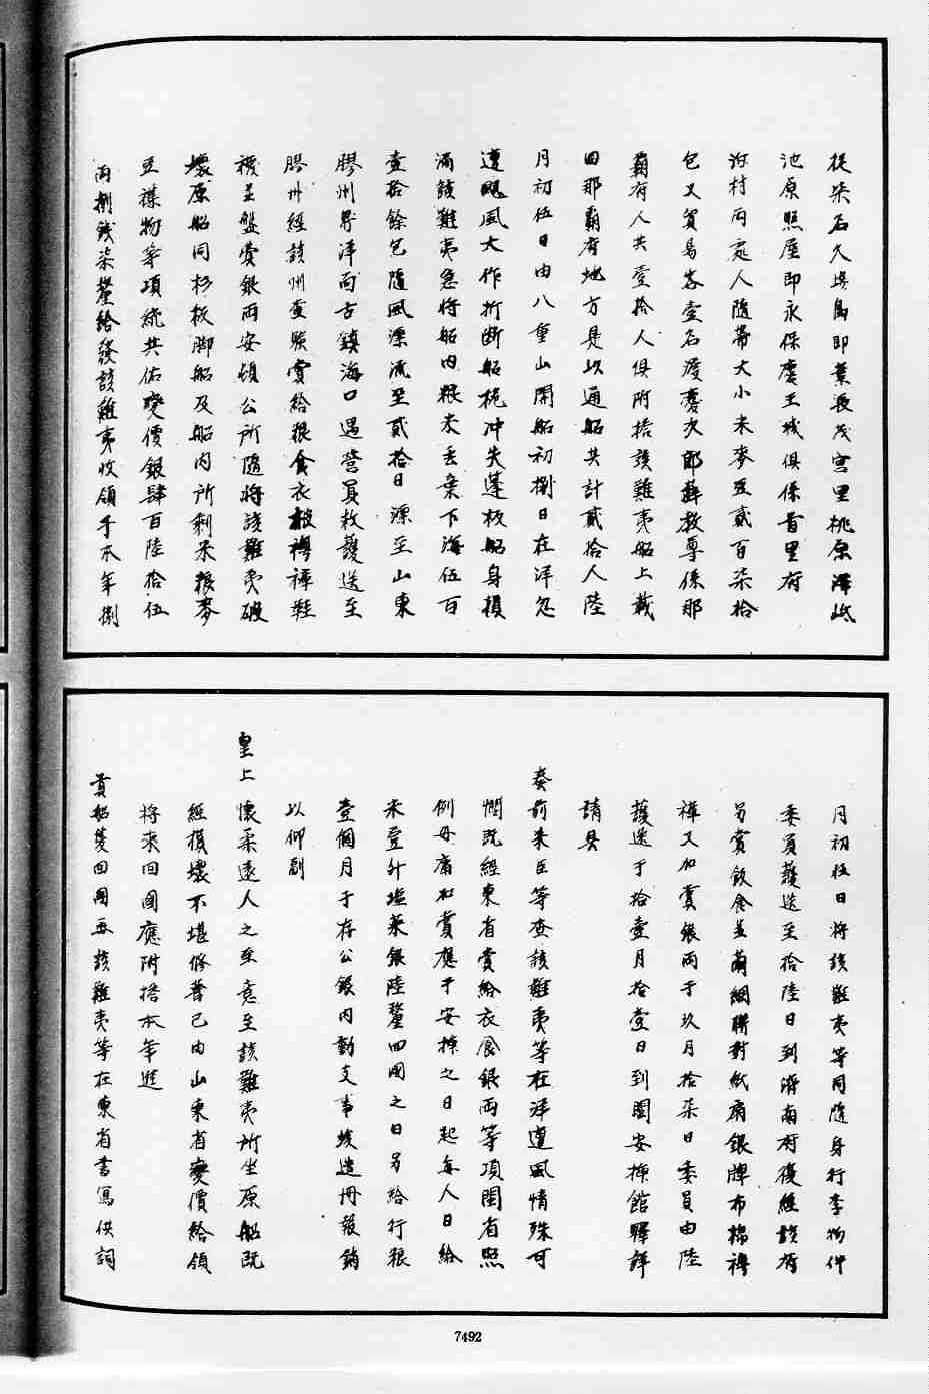 從柒名久場島即業良茂宮里桃原澤岻
池原照屋即永保慶王城俱係首里府
泊村両處人隨帶大小米麥豆貳百柒拾
包又貿易客壹名渡慶次郎蘇教尊係那
覇有人共壹拾人俱附搭該難夷船上載
回那覇府地方是以通船共計貳拾人陸
月初伍日由八重山開船初捌日在洋忽
遭颶風大作折断船桅冲失蓬板船身損
漏該難夷急将船内粮米丢棄下海伍百
壹拾餘包隨風漂流至貳拾日漂至山東
膠州界洋面古鎮海口遇營員救護送至
膠州經該州查驗賞給粮食衣被褥褲鞋
襪並盤賞銀両安頓公所隨将該難夷破
壞原船同杉板脚船及船内所剩米粮麥
豆襍物等項統共估變價銀肆百陸拾伍
両捌錢柒釐給發該難夷收領于本年捌
月初伍日将該難夷等同隨身行李物件
委員護送至拾陸日到濟南府復經該府
另賞飲食並繭綢聯對紙扇銀牌布棉褥
褲又加賞銀両于玖月拾柒日委員由陸
護送于拾壹月拾壹日到閩安揷館驛詳
請具
奏前来臣等查該難夷等在洋遭風情殊可
憫既經東省賞給衣食銀両等項閩省照
例毋庸加賞應于安揷之日起每人日給
米壹升塩菜銀陸釐回國之日另給行粮
壹個月于存公銀内動支事竣造冊報銷
以仰副
皇上懷柔遠人之至意至該難夷所坐原船既
經損壞不堪修葺已由山東省變價給領
将來回國應附搭本年進
貢船隻回國再該難夷等在東省書寫供詞
7492